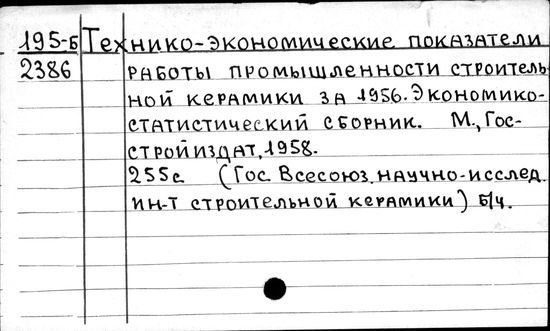 195-Б Технико-экономические показатели
2386 работы промышленности строитель-
ной керамики за 1956. Экономико-
статистический сборник. М., Гос-
стройиздат, 1958.
255с. (Гос. Всесоюз. научно-исслед.
ин-т строительной керамики) б/ч.